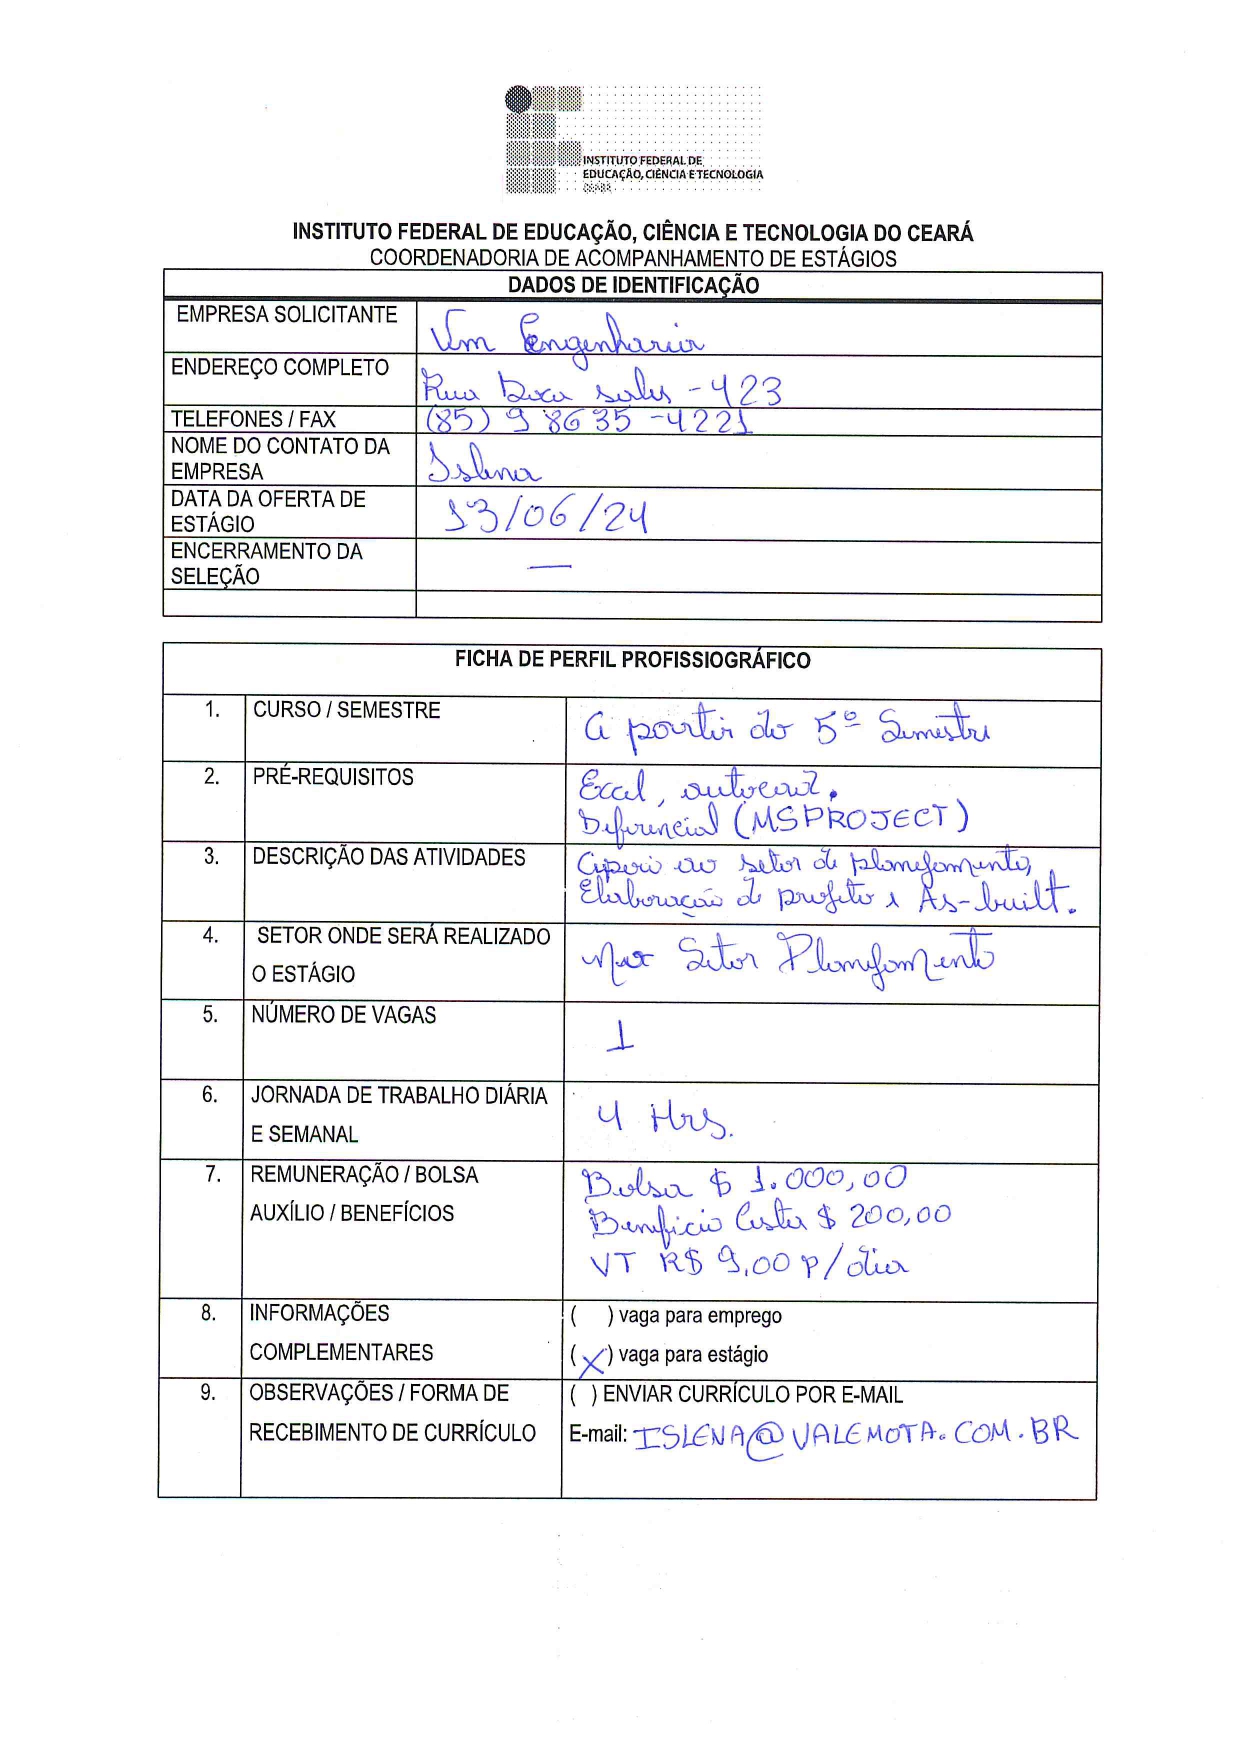 INSTITUTO FEDERAL DE
EDUCAÇÃO, CIÊNCIA E TECNOLOGIA
CEARÁ
INSTITUTO FEDERAL DE EDUCAÇÃO, CIÊNCIA E TECNOLOGIA DO CEARÁ
COORDENADORIA DE ACOMPANHAMENTO DE ESTÁGIOS
DADOS DE IDENTIFICAÇÃO
EMPRESA SOLICITANTE
Vm Engenharia
ENDEREÇO COMPLETO
Rua - 423
TELEFONES / FAX
(85) 9 8635 - 4221
NOME DO CONTATO DA
EMPRESA
Islena
DATA DA OFERTA DE
ESTÁGIO
13/06/24
ENCERRAMENTO DA
SELEÇÃO
—
FICHA DE PERFIL PROFISSIOGRÁFICO
1. CURSO / SEMESTRE
A partir do 5º Semestre
2. PRÉ-REQUISITOS
Excel, autocad.
Diferencial (MSPROJECT)
3. DESCRIÇÃO DAS ATIVIDADES
Apoio ao setor de planejamento,
Elaboração de projeto e As-built.
4. SETOR ONDE SERÁ REALIZADO
O ESTÁGIO
Setor Planejamento
5. NÚMERO DE VAGAS
1
6. JORNADA DE TRABALHO DIÁRIA
E SEMANAL
4 Hrs.
7. REMUNERAÇÃO / BOLSA
AUXÍLIO / BENEFÍCIOS
Bolsa $ 1.000,00
Beneficio Cesta $ 200,00
VT R$ 9,00 p/dia
8. INFORMAÇÕES
COMPLEMENTARES
( ) vaga para emprego
(X) vaga para estágio
9. OBSERVAÇÕES / FORMA DE
RECEBIMENTO DE CURRÍCULO
( ) ENVIAR CURRÍCULO POR E-MAIL
E-mail: ISLENA@VALEMOTA.COM.BR